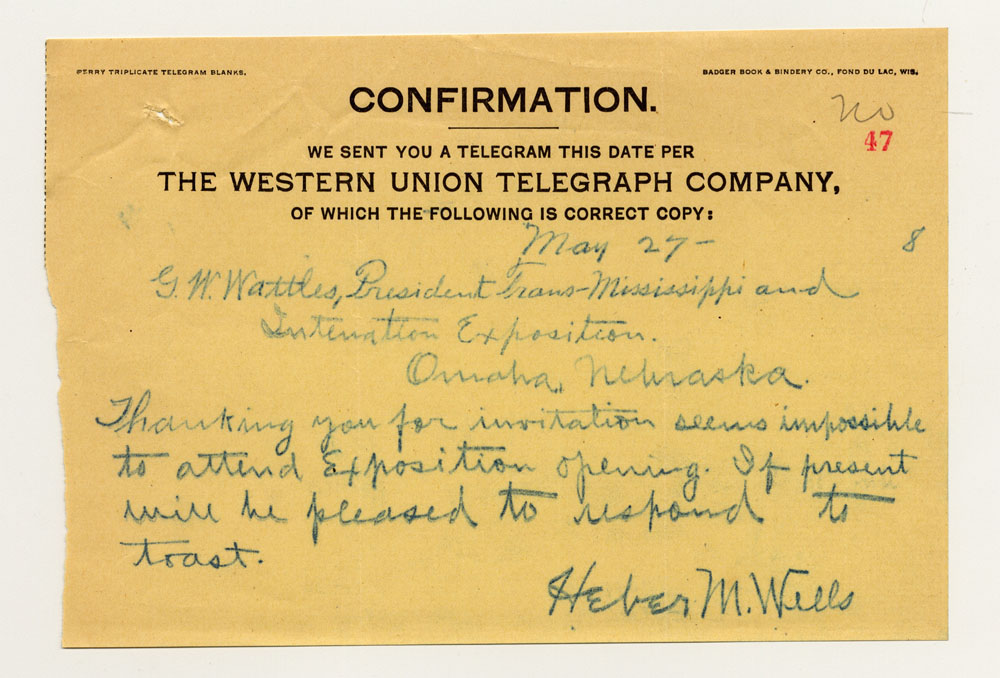 PERRY TRIPLICATE TELEGRAM BLANKS.
BADGER BOOK & BINDERY CO., FOND DU LAC, WIS.
CONFIRMATION.
no
47
WE SENT YOU A TELEGRAM THIS DATE PER
THE WESTERN UNION TELEGRAPH COMPANY,
OF WHICH THE FOLLOWING IS CORRECT COPY:
May 27- 8
G. W. Wattles, President Trans-Mississippi and
Intenation Exposition.
Omaha, Nebraska.
Thanking you for invitation seems impossible
to attend Exposition opening. If present
will be pleased to respond to
toast.
Heber M. Wells